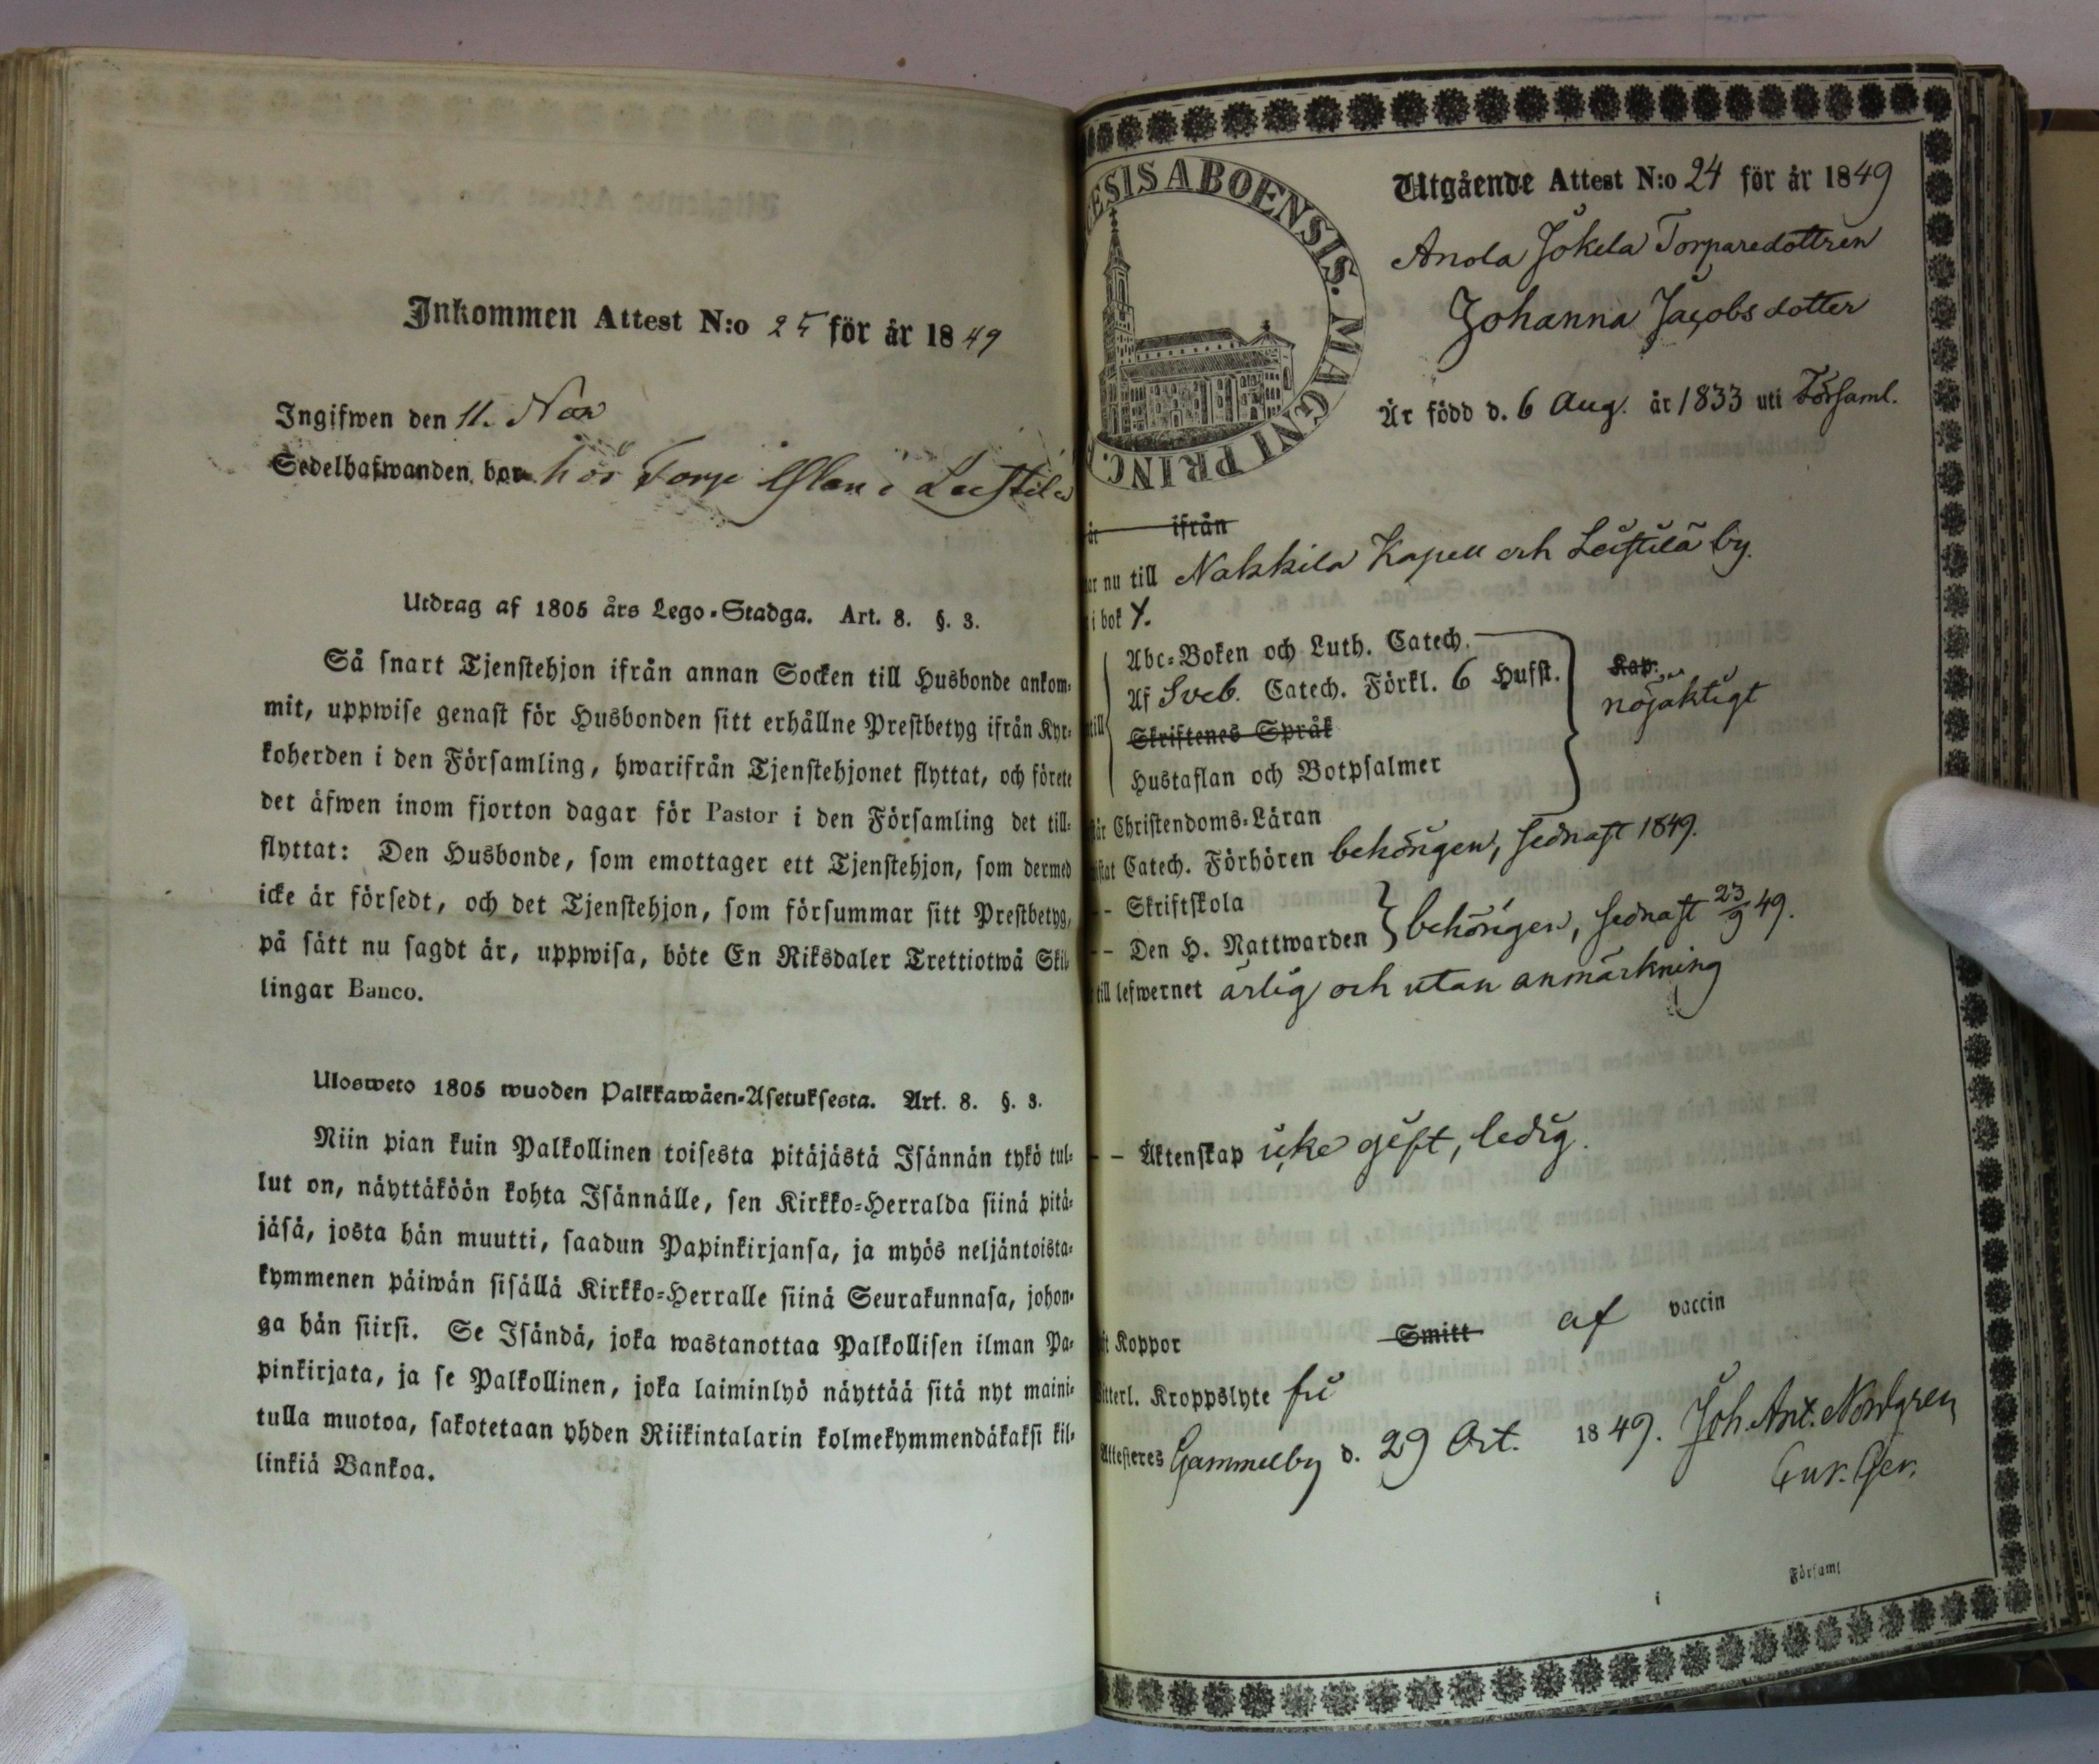 Inkommen Attest N:o 25 för år 1849
Ingifwen den 11. Nov
Sedelhafwanden bor hos Torp i Leistilä
Utdrag af 1805 års Lego-Stadga. Art. 8. §. 3.
Så snart Tjenstehjon ifrån annan Socken till Husbonde ankom-
mit, uppwise genast för Husbonden sitt erhållne Prestbetyg ifrån Kyr-
koherden i den Församling, hwarifrån Tjenstehjonet flyttat, och förete
det äfwen inom fjorton dagar för Pastor i den Församling det till-
flyttat: Den Husbonde, som emottager ett Tjenstehjon, som dermed
icke är försedt, och det Tjenstehjon, som försummar sitt Prestbetyg,
på sätt nu sagdt är, uppwisa, böte En Riksdaler Trettiotwå Skil-
lingar Banco.
Ulosweto 1805 wuoden Palkkawäen-Asetuksesta. Art. 8. §. 3.
Niin pian kuin Palkollinen toisesta pitäjästä Isännän tykö tul-
lut on, näyttäköön kohta Isännälle, sen Kirkko-Herralda siinä pitä-
jäsä, josta hän muutti, saadun Papinkirjansa, ja myös neljäntoista-
kymmenen päiwän sisällä Kirkko-Herralle siinä Seurakunnasa, johon-
ga hän siirsi. Se Isändä, joka wastanottaa Palkollisen ilman Pa-
pinkirjata, ja se Palkollinen, joka laiminlyö näyttää sitä nyt maini-
tulla muotoa, sakotetaan yhden Riikintalarin kolmekymmendäkaksi kil-
linkiä Bankoa.
ESIS ABOENSIS. MAGNI PRINC.
Utgående Attest N:o 24 för år 1849
Anola Jokela Torparedottren
Johanna Jacobsdotter
Är född d. 6 Aug. år 1833 uti Församl.
är ifrån
ar nu till Nakkila Kapell och Leistilä by.
i bok
Abc-Boken och Luth. Catech.
Af Sveb. Catech. Förkl. 6 Hufst.
Kap.
nöjaktigt
till
Skriftenes Språk
Hustaflan och Botpsalmer
år Christendoms-Läran
istat Catech. Förhören behörigen, sednast 1849.
- - Skriftskola
- - Den H. Nattwarden behörigen, sednast 23/9 49.
till lefwernet ärlig och utan anmärkning
- - Äktenskap icke gift, ledig.
ft Koppor Smitt af vaccin
itterl. Kroppslyte fri
Attesteres Gammelby d. 29 Oct. 1849. Joh. Ant. Nordgren
i Församl